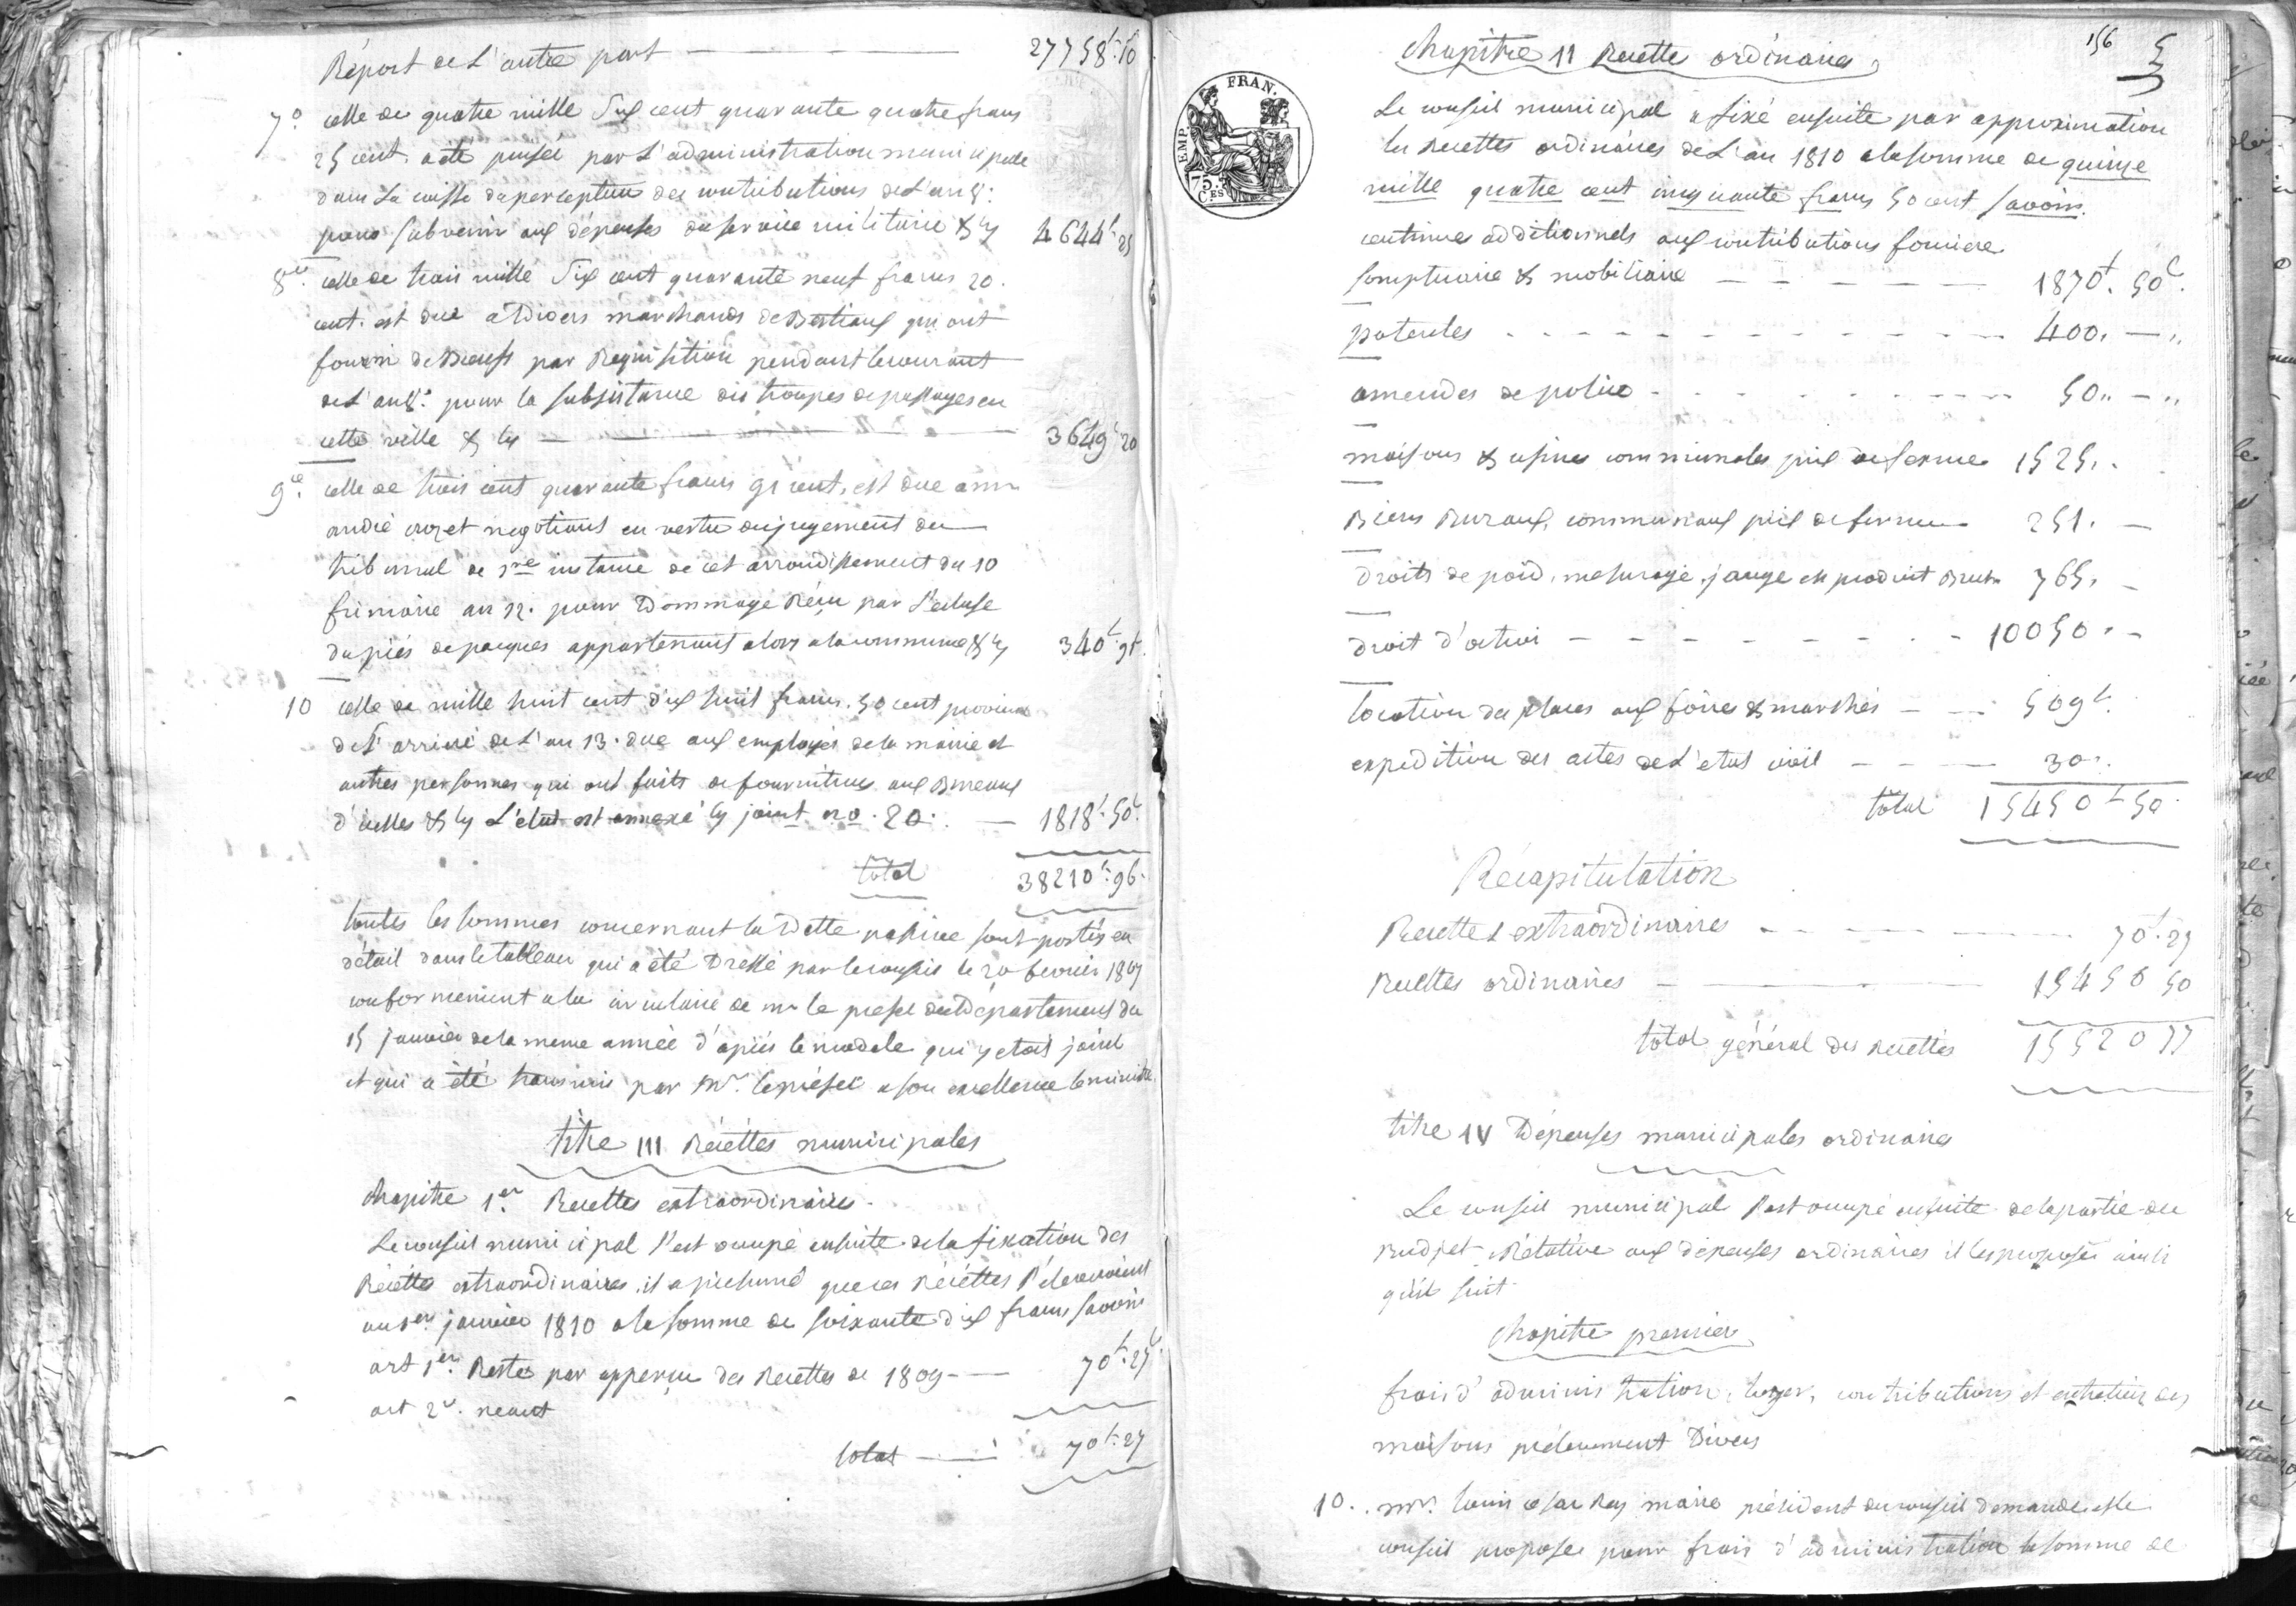 Réport de L'autre part — 27758f.10
7o. celle de quatre mille Six cent quarante quatre francs
25 cent. a été puisée par L'administration municipale
dans La caisse du percepteur des contributions de L'an 8.
pour subvenir aux dépenses du service militaire & cy 4644f.25
8e. celle de trois mille Six cent quarante neuf francs 20.
cent. est due a Divers marchands de Bestiaux qui ont
fourni de Boeufs par Requisition pendant le courant
de L'an 8. pour la subsistance des troupes de passages en
cette ville & cy — 3649f 20
9e. celle de trois cent quarante francs 91 cent. est due a mr
andré negotiant en vertu du jugement du
tribunal de 1re instance de cet arrondissement du 10
frimaire an 12. pour Dommage Réçu par L'ecluse
du prés de paques appartenant alors a la commune & cy 340f.91
10 celle de mille huit cent dix huit francs. 50 cent provenu
de L'arriéré de L'an 13. due aux employés de la mairie et
autres personnes qui ont faits de fournitures aux Bureaux
d'icelles & cy L'état est annexé cy joint no. 20. — 1818f.50c
total 38210f.96
toutes les sommes concernant la Dette passive sont portés en
détail dans le tableau qui a été Dressé par le conseil le 20 fevrier 1807
conformement a la circulaire de mr le prefet du Département du
15 janvier de la meme année d'après le modele qui y etoit joint
et qui a été transmis par Mr. le préfet a son excellence le ministre.
titre III Récéttes municipales
chapitre 1er. Recettes extraordinaires.
Le conseil municipal s'est occupé ensuite de la fixation des
Récéttes extraordinaires. il a présumé que ces récéttes s'éleveroient
au 1er janvier 1810 a la somme de soixante dix francs savoir
art 1er. Reste par apperçu des Recettes de 1809 — 70f.27c
art 2e. neant
total — 70f.27
156
chapitre II Recette ordinaires
Le conseil municipal a fixé ensuite par approximation
les Recettes ordinaires de L'an 1810 a la somme de quinze
mille quatre cent cinquante francs 50 cent savoir.
centimes additionnels aux contributions fonciere
somptuaire & mobiliaire — 1870f. 50c.
patentes — 400. — "
amendes de police — 50. — "
maisons & usines communales prix de ferme 1525.
Biens Ruraux, communaux prix de ferme 251. —
Droits de poid, mesurage, jauge en produit Brut 765. —
Droit d'octroi — 10050. —
location des places aux foires & marchés — 509f.
expedition des actes de L'etat civil — 30.
total 15450f 50.
Récapitulation
Recettes extraordinaires — 70f.27
Recettes ordinaires — 15450 50
total général des recettes 15520 77
titre IV Dépenses municipales ordinaires
Le conseil municipal s'est occupé ensuite de la partie du
Budjet Rélative aux dépenses ordinaires il les proposée ainsi
qu'il suit
chapitre premier
frais d'administration, loyer, contributions et entretien des
maisons prélevement Divers
1o. mr. louis cesar Rey maire président du conseil demande et le
conseil propose pour frais d'administration la somme de
FRAN.
EMP.
75.
CES